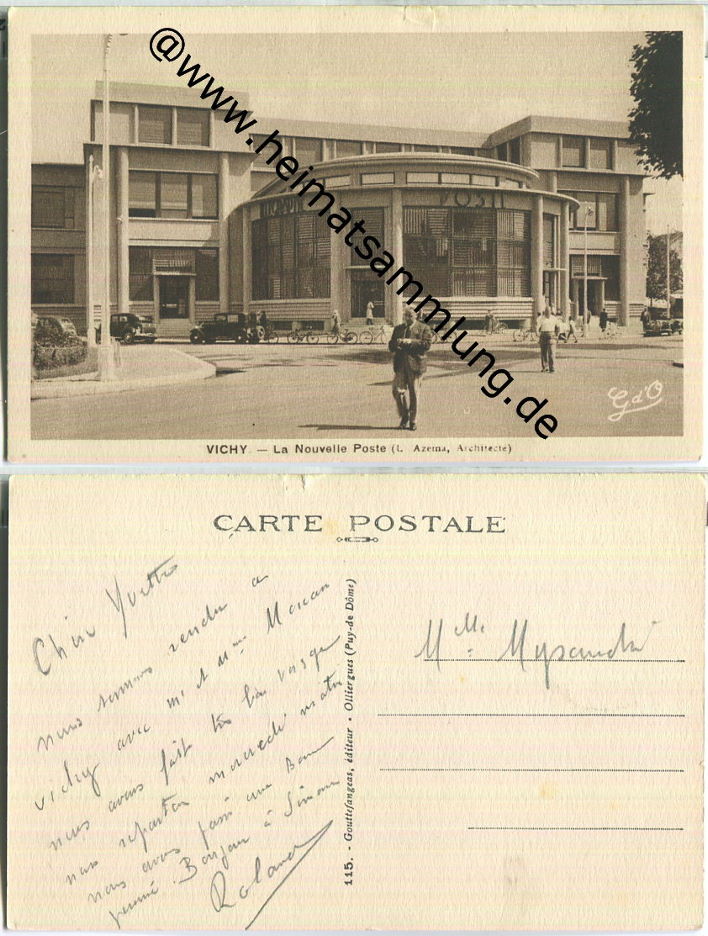 @www.heimatsammlung.de
POST
G d'O
VICHY. — La Nouvelle Poste (L. Azema, Architecte)
CARTE POSTALE
Chère Yvette
nous sommes rendu a
Vichy avec Mr et Mme
nous avons fait très bon
nous repartons mercredi matin
nous avons passé une Bonne
Bonjour à Simone
Roland
115. - Gouttefangeas, éditeur - Olliergues (Puy-de Dôme)
Mlle